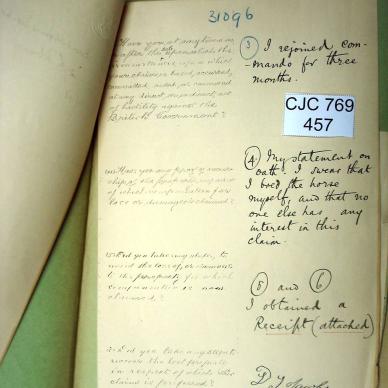 31096
Have you at any time on
or after the
circumstances upon which
your claim is based, occurred,
committed aided, or connived
at any direct, or indirect act
of hostility against the
British Government?
(3) I rejoined com-
-mando for three
months.
CJC 769
457
Have you any proof of owner
ship of the property in respect
of which compensation for
loss or damage is claimed?
(4) My statement on
oath. I swear that
I bred the horse
myself, and that no
one else has any
interest in this
claim.
Did you take any steps, to
the loss of, or damage
to the property for which
compensation is now
claimed?
(5) and (6)
I obtained a
Receipt (attached)
Did you take any steps to
recover the lost property
in respect of which this
claim is preferred?